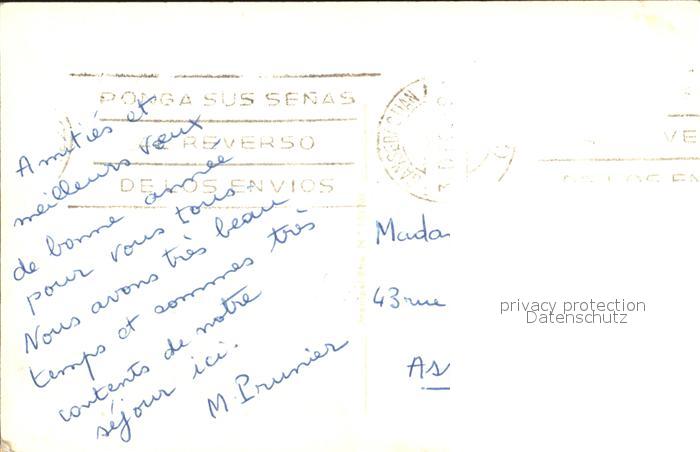 PONGA SUS SEÑAS
AL REVERSO
DE LOS ENVIOS
SAN SEBASTIAN
VE
DE LOS EN
Amitiés et
meilleurs vœux
de bonne année
pour vous tous.
Nous avons très beau
temps et sommes très
contents de notre
séjour ici.
M. Prunier
Mada
43 rue
As
privacy protection
Datenschutz